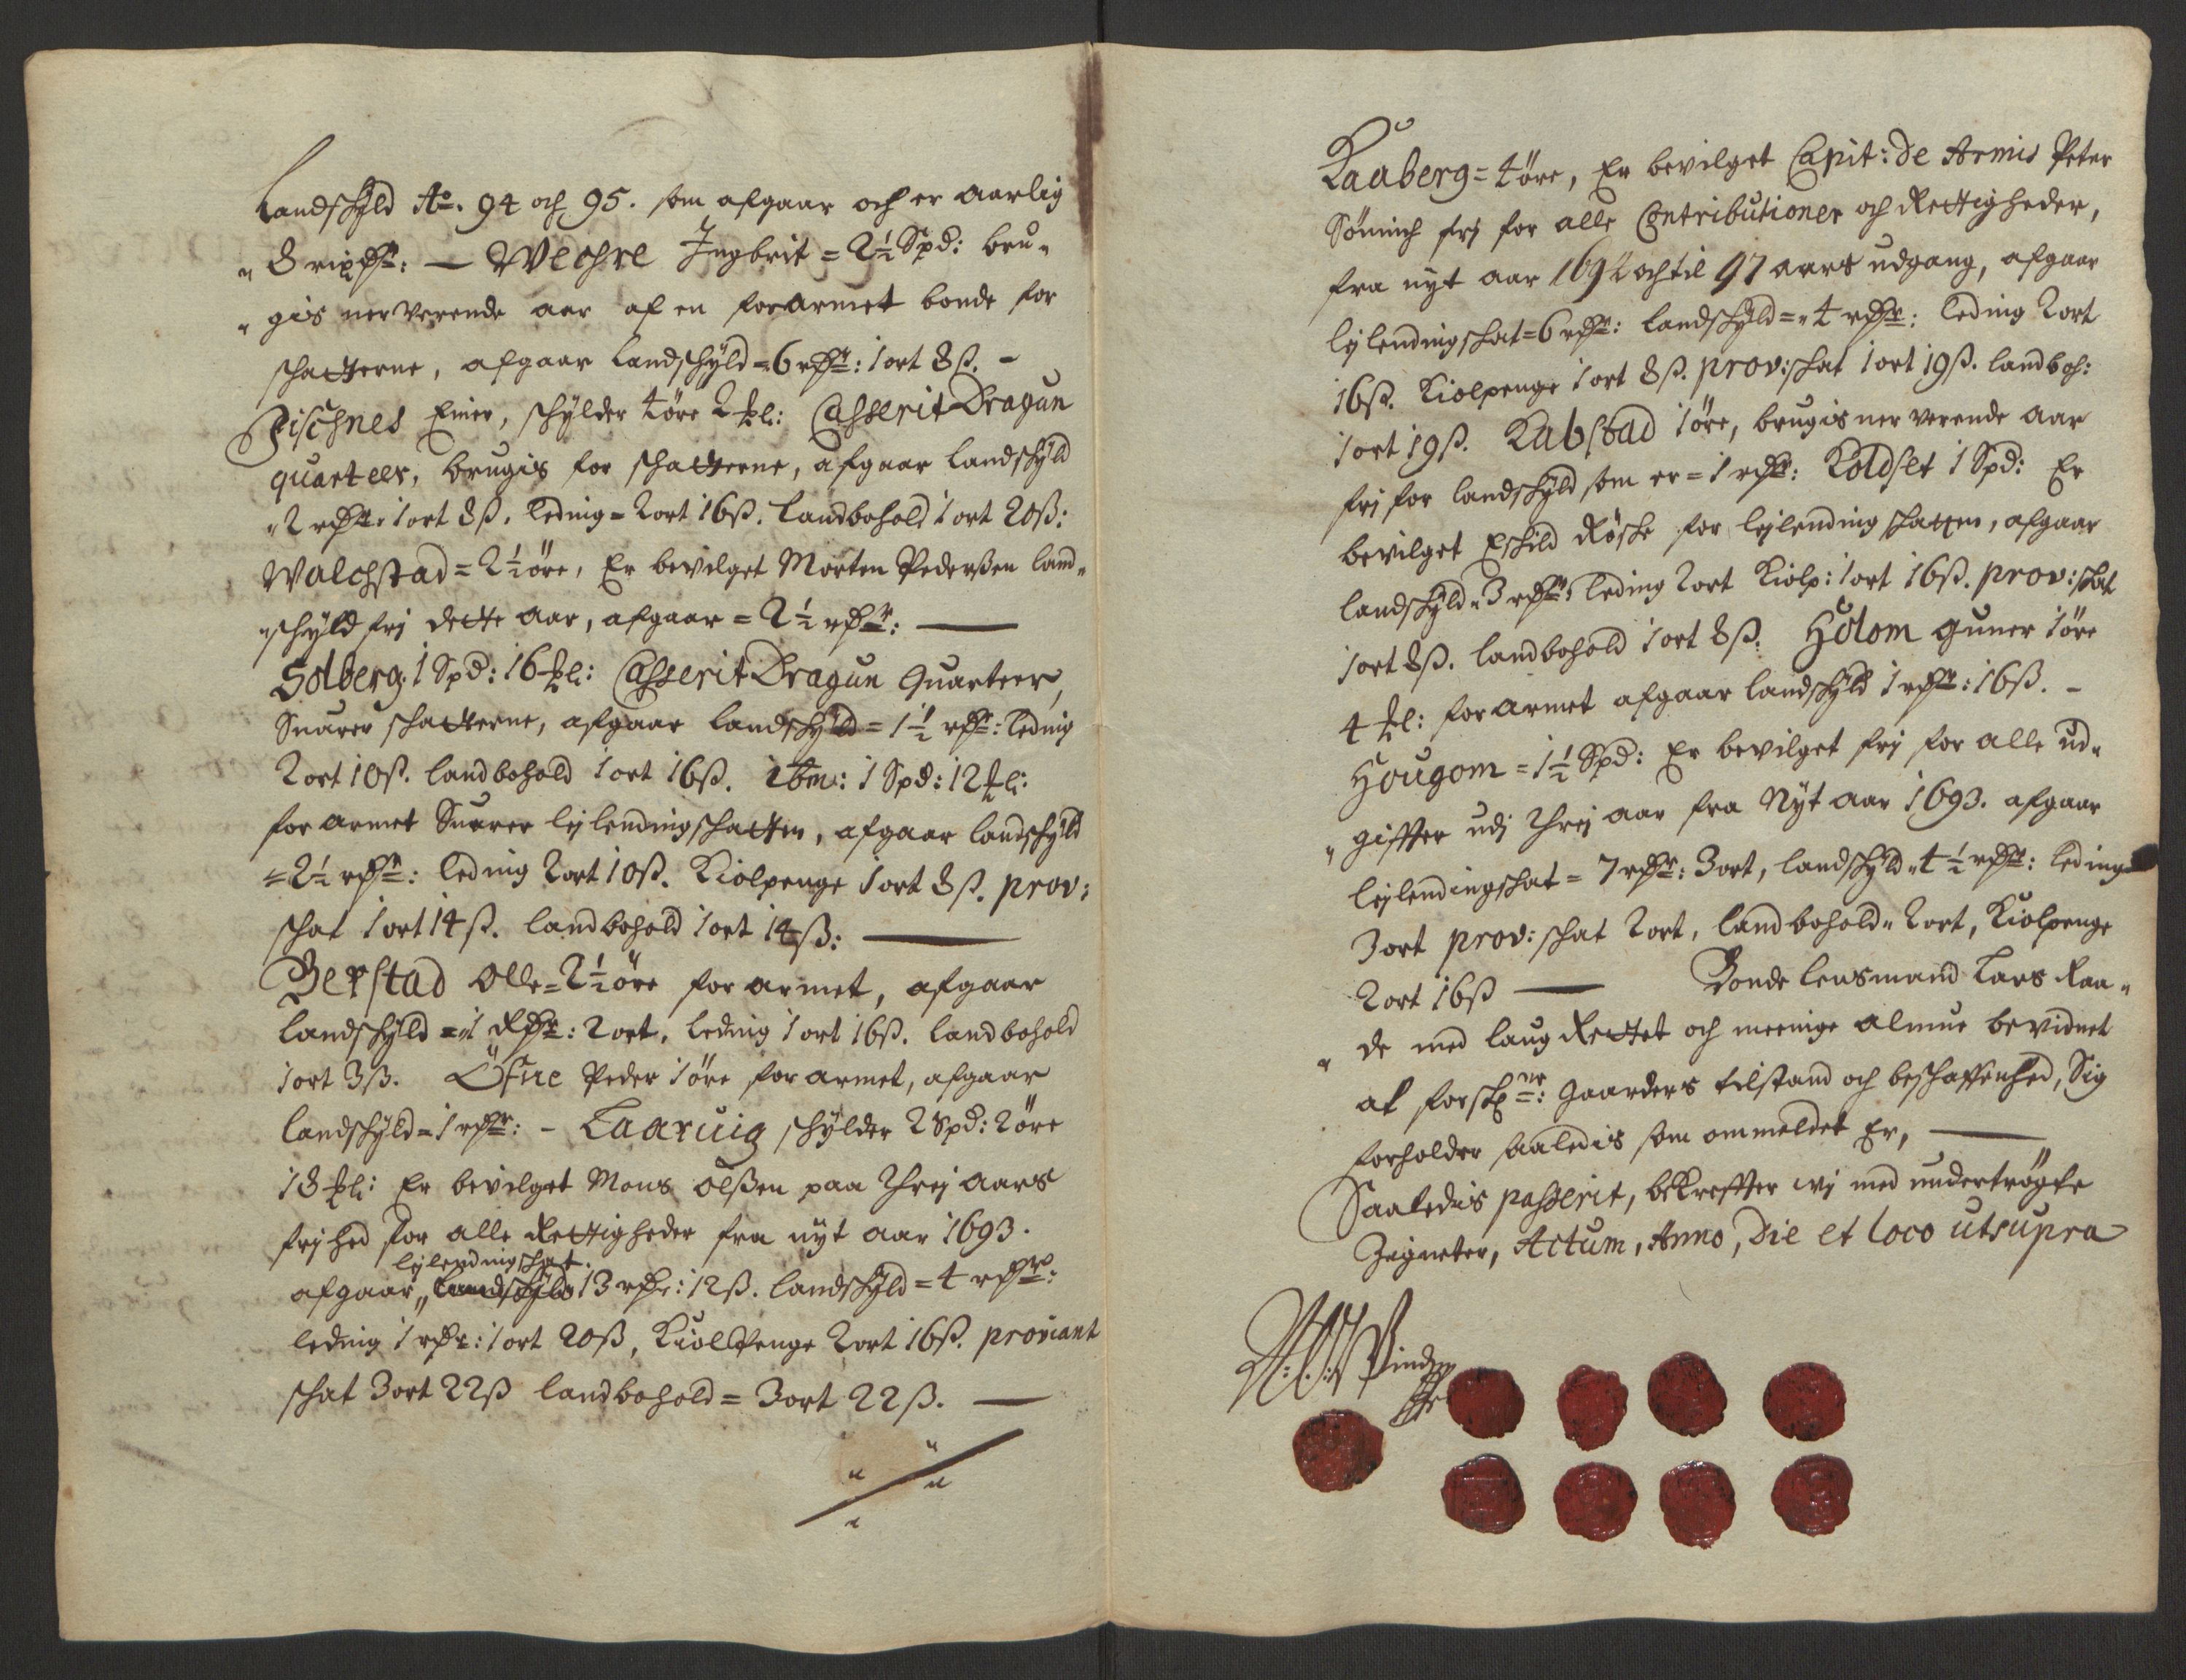 Landschyld Ao. 94 och 95. som afgaar och er aarlig
" 8 rixdr: — Wechre Ingbrit = 2½ Spd: bru"
" gis nerverende aar af en forarmet bonde for
schatterne, afgaar Landschyld = 6 rdr: 1 ort 8 ß. -
Fischnes Einer, schylder 4 öre 2 ℔l: Casserit Dragun
quarteer, brugis for schatterne, afgaar Landschyld
"2 rdr: 1 ort 8 ß. leding = 2 ort 16 ß. Landbohold 1 ort 20 ß:
Walchstad = 2½ öre, Er bevilget Morten Pederßen land"
"schyld frj dette aar, afgaar = 2½ rdr: —
Solberg. 1 Spd: 16 ℔l: Casserit Dragun Quarteer,
Suarer schatterne, afgaar Landschyld = 1½ rdr: leding
2 ort 10 ß. landbohold 1 ort 16 ß. ibm: 1 Spd: 12 ℔l:
forarmet Suarer leylendingschatten, afgaar landschyld
= 2½ rdr: leding 2 ort 10 ß. Kiolpenge 1 ort 8 ß. prov:
schat 1 ort 14 ß. landbohold 1 ort 14 ß: —
Berstad Olle = 2½ öre forarmet, afgaar
Landschyld = 1 Rdr: 2 ort, leding 1 ort 16 ß. landbohold
1 ort 3 ß. Öfire Peder 1 öre forarmet, afgaar
landschyld = 1 rdr: - Laaruig schylder 2 Spd: 2 öre
18 ℔l: Er bevilget Mons Olßen paa Threj aars
frjhed for alle Rettigheder fra nyt aar 1693.
leylendingschat.
afgaar " Landschyld 13 rdr: 12 ß. landschyld = 4 rdr:
leding 1 rdr: 1 ort 20 ß, Kiollpenge 2 ort 16 ß. proviant
schat 3 ort 22 ß landbohold = 3 ort 22 ß. —
Raaberg = 4 öre, Er bevilget Capit: de Armis Peter
Sönnich frj for alle Contributioner och Rettigheder,
fra nyt aar 1692 och til 97 aars udgang, afgaar
leylendingschat = 6 rdr: landschyld = " 4 rdr: leding 2 ort
16 ß. Kiolpenge 1 ort 8 ß. prov: schat 1 ort 19 ß. landboh:
1 ort 19 ß. Kabstad 1 öre, brugis nerverende aar
frj for landschyld som er = 1 rdr: Koldset 1 Spd: Er
bevilget Eschild Röske for leylendingschatten, afgaar
landschyld " 3 rdr: leding 2 ort Kiolp: 1 ort 16 ß. prov: schat
1 ort 8 ß. landbohold 1 ort 8 ß. Holom guner 1 öre
4 ℔l: forarmet afgaar landschyld 1 rdr: 16 ß. -
Hougom = 1½ Spd: Er bevilget frj for alle ud"
" giffter udj Threj aar fra Nyt aar 1693. afgaar
leylendingschat = 7 rdr: 3 ort, landschyld " 4½ rdr: leding
3 ort prov: schat 2 ort, landbohold " 2 ort, Kiolpenge
2 ort 16 ß — Bonde lensmand Lars Raa"
" de med laug Rettet och meenige almue bevidnet
at forschr ne: gaarders tilstand och beschaffenhed, Sig
forholder saaledis som ommeldet Er, —
Saaledis passerit, bekreffter wj med undertrögte
Zigneter, Actum, Anno, Die et loco utsupra